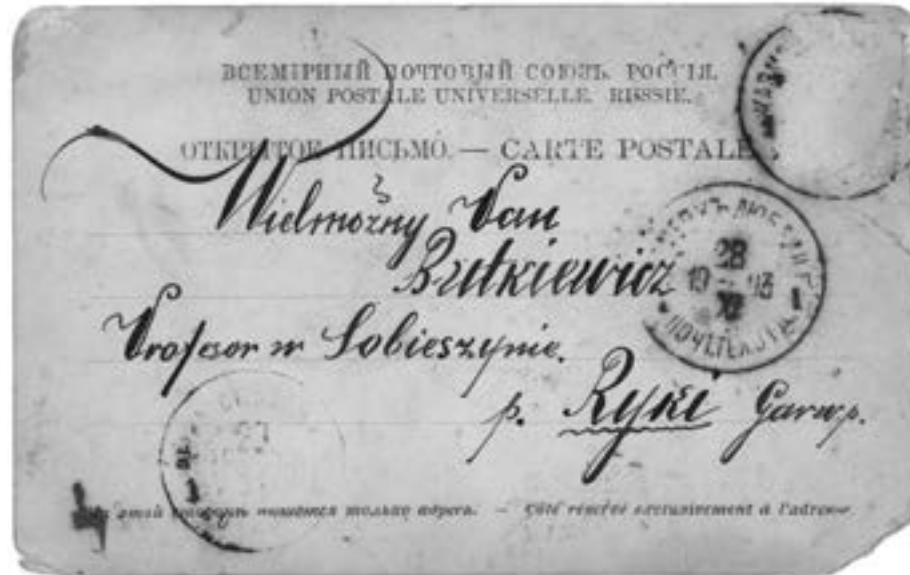 ВСЕМІРНЫЙ ПОЧТОВЫЙ СОЮЗЪ. РОССІЯ.
UNION POSTALE UNIVERSELLE. RUSSIE.
ОТКРЫТОЕ ПИСЬМО. — CARTE POSTALE.
Wielmożny Pan
Butkiewicz
28
19 03
Profesor w Sobieszynie.
p. Ryki Garw p.
На этой сторонѣ пишется только адресъ. — Côté réservé exclusivement à l'adresse.